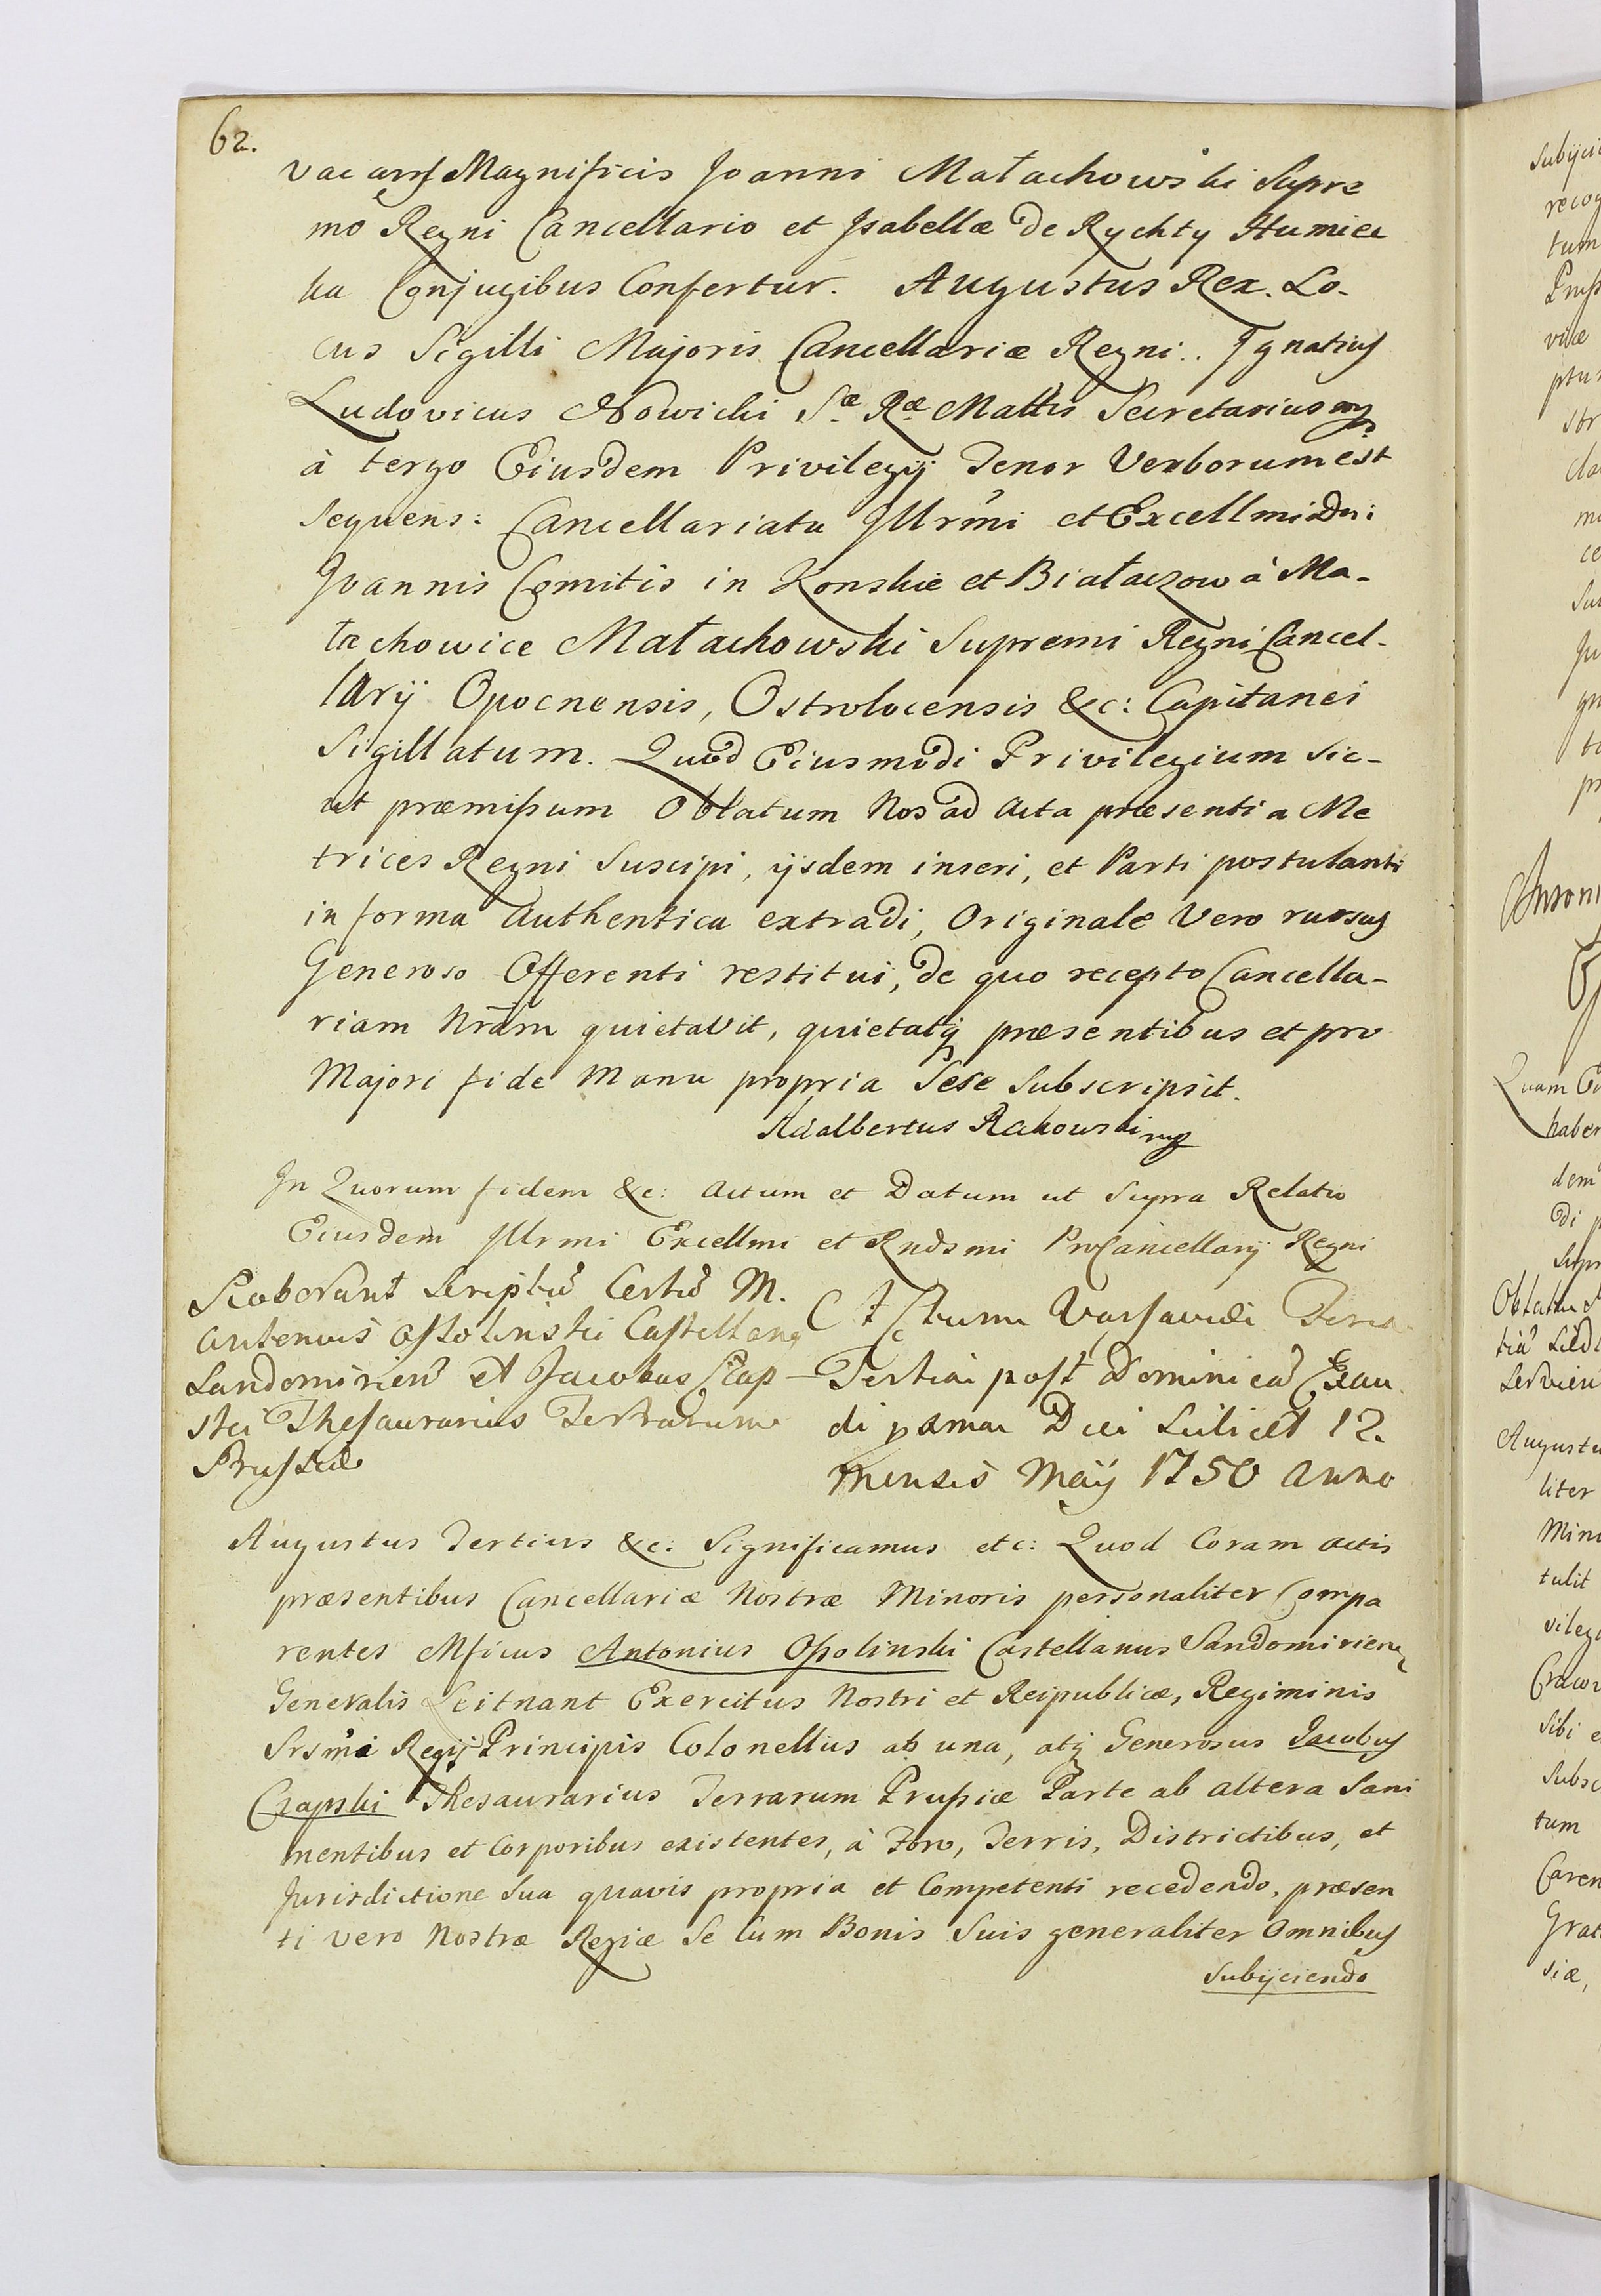 62.
vacans Magnificis Joanni Małachowski Supre
mo Regni Cancellario et Isabellæ de Rychty Humiec
ka Conjugibus Confertur. Augustus Rex. Lo-
cus Sigilli Majoris Cancellariæ Regni.. Ignatius
Ludovicus Nowicki Sæ Ræ Mattis Secretarius mp
à tergo Eiusdem Privilegij Tenor Verborum est
Sequens: Cancellariatu Illrmi et Excellmi Dni
Joannis Comitis in Konskie et Białaczow à Ma-
łachowice Małachowski Supremi Regni Cancel-
larij Opocnensis, Ostrolocensis &c: Capitanei
Sigillatum. Quod Eiusmodi Privilegium Sic-
ut præmissum Oblatum Nos ad Acta præsentia Me
trices Regni Suscipi, ijsdem inseri, et Parti postulanti
in forma Authentica extradi, Originale Vero rursus
Generoso Offerenti restitui, de quo recepto Cancella-
riam Nram quietavit, quietatq præsentibus et pro
Majori fide Manu propria Sese Subscripsit.
Adalbertus Rakowski mp
In Quorum fidem &c: Actum et Datum ut Supra Relatio
Eiusdem Illrmi Excellmi et Rndsmi ProCancellarij Regni
Roborant Scriptu Certu M.
Antonius Ossolinski Castellang
Sandomirien et Jacobus Czap-
ski Thesaurarius Terrarum
Prussiæ
Actum Varsaviæ Feria
Tertia post Dominica Exau
di pxma Die Scilicet 12.
Mensis Maij 1750 Anno
Augustus Tertius &c: Significamus etc: Quod Coram Actis
præsentibus Cancellariæ Nostræ Minoris personaliter Compa
rentes Mficus Antonius Ossolinski Castellanus Sandomirien
Generalis Leitnant Exercitus Nostri et Reipublicæ, Regiminis
Srsmi Regij Principis Colonellus ab una, atq Generosus Jacobus
Czapski Thesaurarius Terrarum Prussiæ Parte ab altera Sani
mentibus et Corporibus existentes, à Foro, Terris, Districtibus, et
Jurisdictione Sua quavis propria et Competenti recedendo, præsen
ti vero Nostræ Regiæ Se Cum Bonis Suis generaliter Omnibus
Subijciendo